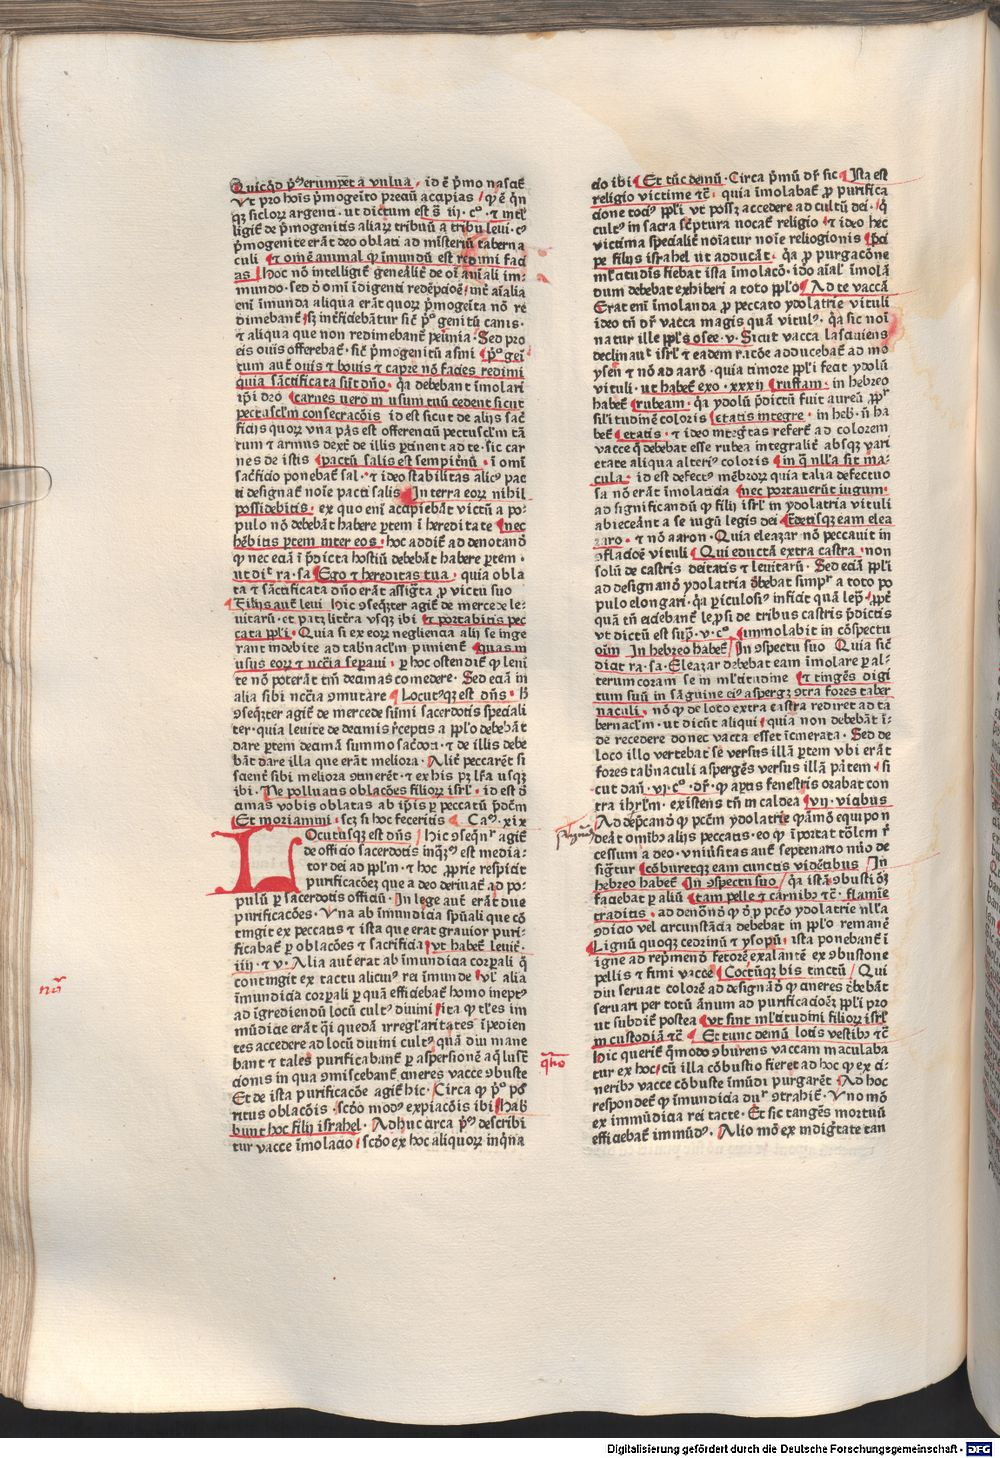 Quicq̄d p̄ꝰ erumpet a vulua · id ē p̄mo nascat̄
vt pro hoīs p̄mogeīto preciū accipias / q ē qn̄
qꝫ siclorꝝ argenti · vt dictum est s̄ iij · cº · ⁊
ligit̄ de p̄mogenitis aliarꝝ tribuū a tribu leui ·
p̄mogenite erāt deo oblati ad misteriū taberna
culi ⁊ om̄e animal qꝫ īmundū est redimi faci
as / hoc nō intelligit̄ generalit̄ de oī aīali im-
mundo · sed d̓ omī īdigenti redēpcioē / int̄ aīalia
enī īmunda aliqua erāt quorꝝ p̄mogeīta nō re
dimebant̄ / sꝫ int̄ficiebātur sic̄ p̄ºgenitū canis ·
⁊ aliqua que non redimebant̄ pecunia · Sed pro
eis ouis offerebat̄ · sic̄ p̄mogenitū asini p̄ºgeī
tum aut̄ ouis ⁊ bouis ⁊ capre nō facies redimi
quia sāctificata sūt dn̄o · qꝛ debebant īmolari
ip̄i deo carnes vero in vsum tuū cedent sicut
pectuscl̄m consecracōis id est sicut de alijs sac̄
ficijs quorꝝ vna pars est offerenciū pectuscl̄m tā
tum ⁊ armus dext̄ de illis ꝑtinent ad te · sic car
nes de istis pactū salis est sempit̄nū · ī omī
sac̄ficio ponebat̄ sal · ⁊ ideo stabilitas alicꝰ pac
ti designat̄ noīe pacti salis In terra eorꝝ nihil
possidebitis · ex quo enī accipiebāt victū a po-
pulo nō debebāt habere ꝑtem ī hereditate nec
hēbitis ꝑtem inter eos · hoc addit̄ ad denotand̓
ꝙ nec eciā ī p̄dicta hostiū debebāt habere ꝑtem ·
ut dic̄t ra · sa Ego ⁊ hereditas tua · quia obla
ta ⁊ sāctificata dn̄o erāt assigt̄a ꝓ victu suo
Filijs aut̄ leui hic ꝯseq̄nter agit̄ de mercede le-
uitarū · et patꝫ litt̄era vsqꝫ ibi ⁊ portabitis pec
cata ppl̄i · Quia si ex eorꝝ negliencia alij se inge
rant indebite ad tabnac̄lm punient̄ quas in
vsius eorꝝ ⁊ nc̄cīa sep̄aui · ꝑ hoc ostendit̄ ꝙ leui
te nō poterāt tm̄ decimas comedere · Sed eciā in
alia sibi nc̄cīa ꝯmutare Locutꝰqꝫ est dn̄s · h̄
ꝯseq̄nter agit̄ de mercede sūmi sacerdotis speciali
ter · quia leuite de decimis r̄ceptis a ppl̄o debebāt
dare ꝑtem decimā summo sac̄doti · ⁊ de illis debe
bāt dare illa que erāt meliora · Alit̄ peccarēt si
scient̄ sibi meliora ꝯtinerēt · ⁊ ex his pꝫ lr̄a vsqꝫ
ibi · Ne polluatis oblacōes filiorꝝ isrl̄ · id est d̓
cimas vobis oblatas ab ip̄is ꝑ peccatū p̄dc̄m
Et moriamini · scꝫ si hoc feceritis Caᵐ · xix
LOcutusqꝫ est dn̄s / Hic ꝯseqn̄r agit̄
de officio sacerdotis inq̄ꝫtū est media-
tor dei ad ppl̄m · ⁊ hoc ꝓprie respicit
purificacōeꝫ que a deo deriuat̄ ad po-
pulū ꝑ sacerdotis officiū · In lege aut̄ erāt due
purificacōes · Vna ab īmundicia spūali que cō
tingit ex peccatis ⁊ ista que erat grauior puri-
ficabat̄ ꝑ oblacōes ⁊ sacrificia vt habet̄ leuit̄ ·
iiij · ⁊ v · Alia aut̄ erat ab īmundicia corꝑali q̄
contingit ex tactu alicuiꝰ rei īmunde vl̓ alia
īmundicia corꝑali ꝑ quā efficiebat̄ homo ineptꝰ
ad īgrediendū locū cultꝰ diuini / ita ꝙ tl̄es im
mūdicie erāt qi quedā irregl̄aritates īpedien
tes accedere ad locū diuini cultꝰ quā diu mane
bant ⁊ tales purificabant̄ ꝑ aspersionē aq̄ lust̄
cionis in qua ꝯmiscebant̄ cineres vacce ꝯbuste
Et de ista purificacōe agit̄ hic · Circa qꝫ p̄º po
ritus oblacōis · scd̄o modꝰ expiacōis ibi / hab̄
bunt hoc filij israhel · Adhuc circa p̄ꝰ describi
tur vacce īmolacio / scd̄o ex hoc aliquorꝝ inq̄na
cio ibi Et tūc demū · Circa p̄mū dr̄ sic Ista est
religio victime ⁊c̄ · quia īmolabat̄ ꝓ purifica
cione tociꝰ ppl̄i vt possꝫ accedere ad cultū dei · q̄
cultꝰ in sacra sc̄ptura nocat̄ religio ⁊ ideo hec
victima specialit̄ noīatur noīe reliogionis p̄ci
pe filijs israhel ut adducāt · qꝛ ꝓ purgacōne
ml̄titudīs fiebat ista īmolacō · id̓o aīal īmolā
dum debebat exhiberi a toto ppl̄o Ad te vaccā
Erat enī īmolanda ꝓ peccato ydolatrie vituli
ideo tn̄ dr̄ vacca magis quā vitulꝰ · qꝛ sic noī
natur ille ppl̄s osee · v · Sicut vacca lasciuiens
declinauit isrl̄ ⁊ eadem racōe adducebat̄ ad mo
ysen ⁊ nō ad aarō · quia timore ppl̄i fecit ydolū
vituli · ut habet̄ exo · xxxij ruffam · in hebreo
habet̄ rubeam · qꝛ ydolū p̄dictū fuit aureū ꝓpt̄
sil̄itudinē coloris etatis integre · in heb̄ · n̄ ha
bet̄ etatis · ⁊ ideo integ̓tas refert̄ ad colorem
vacce q̄ debebat esse rubea integralit̄ absqꝫ vari
etate aliqua alteriꝰ coloris in q̄ nl̄la sit ma-
cula · id est defectꝰ mēbrorꝝ quia talia defectuo
sa nō erāt īmolaticia nec portauerūt iugum ·
ad significandū ꝙ filij isrl̄ in ydolatria vituli
abieceānt a se iugū legis dei Tdetisqꝫ eam elea
zaro · ⁊ nō aaron · Quia eleazar nō peccauit in
ꝯflacioē vituli Qui eductā extra castra · non
solū de castris deitatis ⁊ leuitarū · Sed eciā ppl̄i
ad designand̓ ydolatria debebat simpꝉr a toto po
pulo elongari · qꝛ ꝑiculosiꝰ inficit quā lep̄ · ꝓpt̄
quā tn̄ eiciebant̄ lep̄si de tribus castris p̄dictis
vt dictū est sup̄ · v · cº · immolabit in cōspectu
oīm In hebreo habet̄ / In ꝯspectu suo Quia sic̄
dicit ra · sa · Eleazar debebat eam īmolare ꝑ al-
terum coram se in ml̄titudine ⁊ tingēs digi
tum suū in sāguine eiꝰ aspergꝫ ꝯtra fores taber
naculi · nō ꝙ de loco extra castra rediret ad ta
bernacl̄m · ut dicūt aliqui / quia non debebāt ī-
de recedere donec vacca esset īcinerata · Sed de
loco illo vertebat se versus illā ꝑtem vbi erāt
fores tabnaculi aspergēs versus illā ꝑtem · si
cut dani · vj · cº · dr̄ · ꝙ aꝑtis fenestris orabat con
tra ihrl̄m · existens tn̄ in caldea vij · vicibus
Ad dep̄cand̓ ꝙ pcc̄m ydolatrie quāmō equipon
deāt omībꝰ alijs peccatis · eo ꝙ īportat tōlem r̄
cessum a deo · vniūsitas aut̄ septenario nūo de
sigt̄ur cōburetqꝫ eam cunctis vidētibus / In
hebreo habet̄ In ꝯspectu suo / qꝛ istā ꝯbusti oꝫ
faciebat ꝑ aliū tam pelle ⁊ carnibꝰ ⁊c̄ · flamīe
traditis · ad denōnd̓ ꝙ d̓ ꝑ pcc̄o ydolatrie nl̄la
ꝯdicio vel circūstācia debebat in ppl̄o remanē
Lignū quoqꝫ cedrinū ⁊ ysopū · ista ponebant̄ ī
igne ad rep̄mend̓ fetorē exalantē ex ꝯbustone
pellis ⁊ fimi vacce Coctūqꝫ bis tinctū / Qui
diu seruat colorē ad designād̓ ꝙ cineres d̓bebāt
seruari per totū ānum ad purificacioēꝫ ppl̄i pro
ut subdit̄ postea vt sint ml̄titudini filiorꝝ isrl̄
in custodiā ⁊c̄ Et tunc demū lotis vestibꝰ ⁊c̄
Hic querit̄ q̄modo ꝯburens vaccam maculaba
tur ex hoc / cū illa cōbustio fieret ad hoc ꝙ ex ci-
neribꝰ vacce cōbuste īmūdi purgarēt̄ · Ad hoc
respondet̄ ꝙ īmundicia dupꝉr ꝯtrahit̄ · Vno mō
ex immūdicia rei tacte · Et sic tangēs mortuū
efficiebat̄ immūdꝰ · Alio mō ex indig̓tate tan